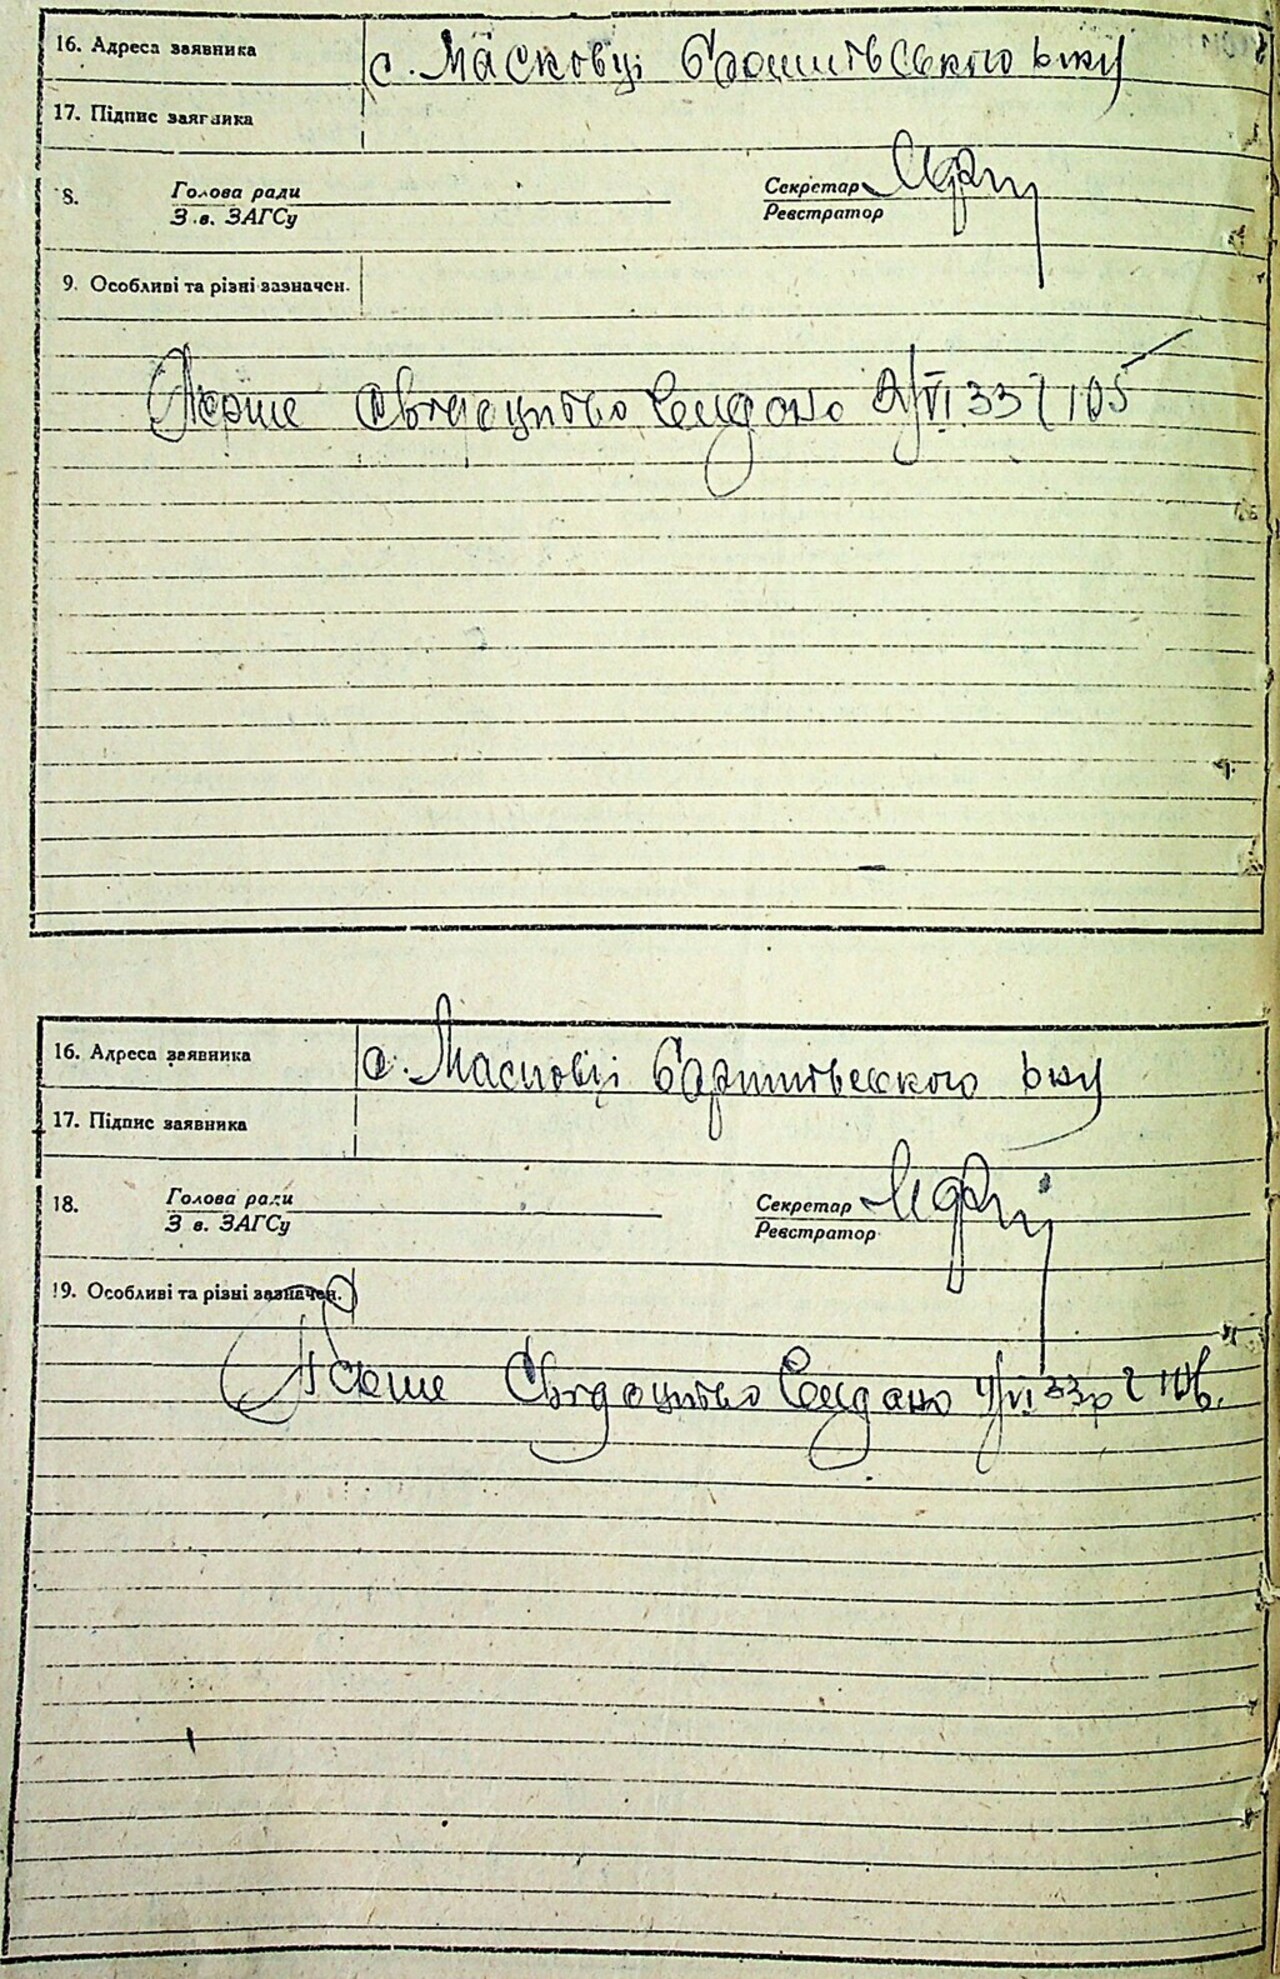 16. Адреса заявника с. Масковці Баришівського р-ну
17. Підпис заявника
8. Голова ради Секретар
З.в. ЗАГСу Реєстратор
9. Особливі та різні зазначен.
Перше свідоцтво видано 2/VI 33 105
16. Адреса заявника с. Масковці
17. Підпис заявника
18. Голова ради Секретар
З в. ЗАГСу Реєстратор
19. Особливі та різні зазначен.
Перше Свідоцтво видано 4/VI 33р